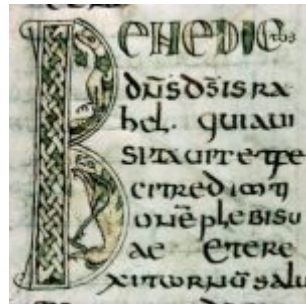 BENEDICTUS
dñs ds isra
hel. quia ui
sitauit et fe
cit redemti
onē plebis su
ae et ere
xit cornū salu